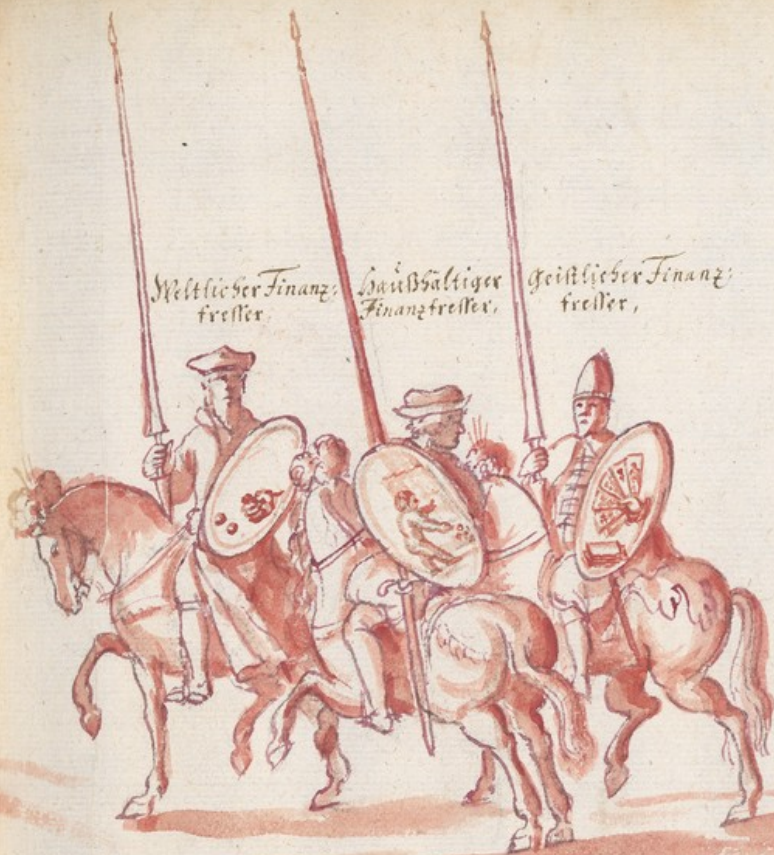 Weltlicher Finanz-
fresser,
Haußhältiger
Finanzfresser,
Geistlicher Finanz-
fresser,